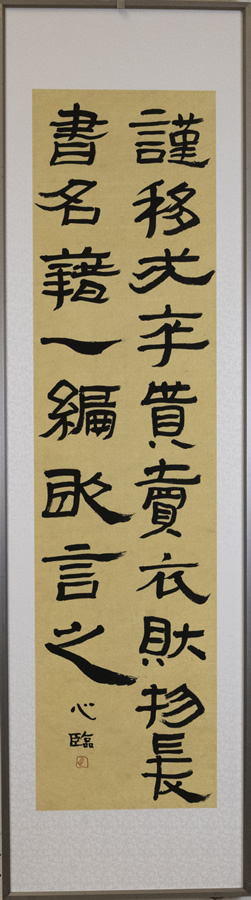 謹移戍卒貰賣衣財物爰
書名籍一編敢言之
心臨